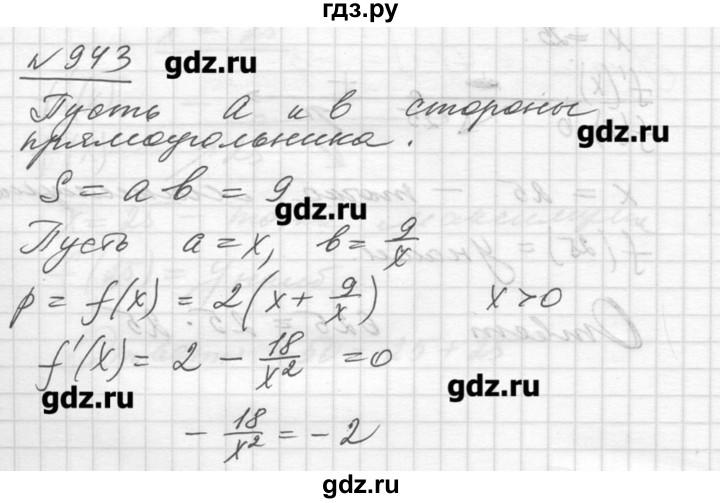 гдз.ру
№ 943
gdz.ru
Пусть a и в стороны
прямоугольника.
gdz.ru
S = a в = 9
gdz.ru
Пусть a = x, в = 9/x
p = f(x) = 2(x + 9/x) x > 0
f'(x) = 2 - 18/x² = 0
gdz.ru
gdz.ru
- 18/x² = - 2